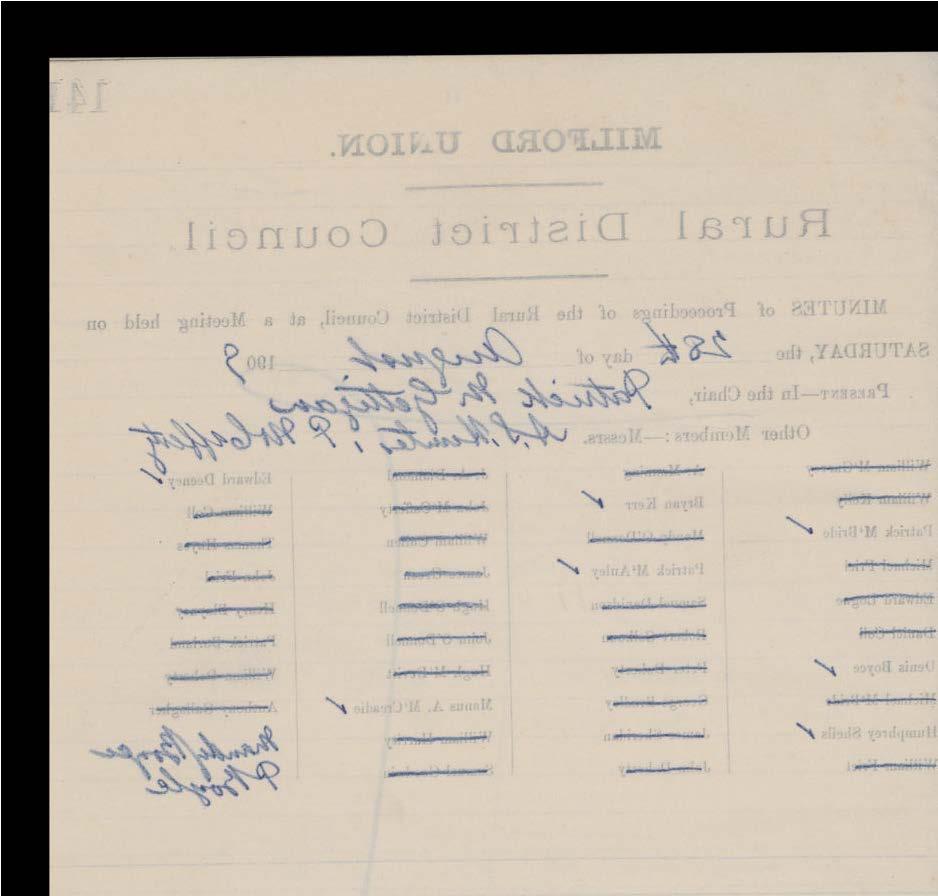 141
MILFORD UNION.
Rural District Council.
MINUTES of Proceedings of the Rural District Council, at a Meeting held on
SATURDAY, the 28th day of August 1909
PRESENT—In the Chair, Patrick McGettigan
Other Members:—Messrs. A.S. Hunter, P McCafferty
William McGarry A. Manning J. A. Diamond Edward Deeney
William Kelly Bryan Kerr John McCafferty William Coll
Patrick McBride Manus O'Donnell William Cullen Thomas Hayes
Michael Friel Patrick McAuley James Green John Friel
Edward Logue Samuel Davidson Hugh O'Donnell Henry
Daniel Coll Robert John O'Donnell Patrick Dorland
Denis Boyce Peter Doherty Hugh McDevitt William Doherty
Michael McBride George Bradley Manus A. McCreadie Anthony Gallagher
Humphrey Sheils James Sheridan William Hanley Boyce
William Friel John Doherty P Boyle